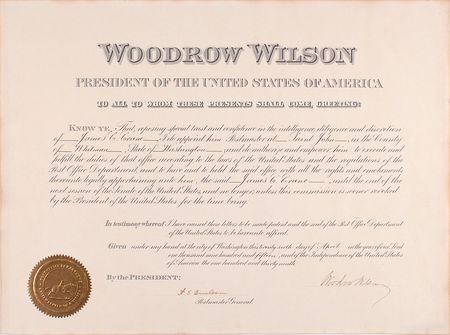 WOODROW WILSON
PRESIDENT OF THE UNITED STATES OF AMERICA
TO ALL TO WHOM THESE PRESENTS SHALL COME, GREETING:
KNOW YE, That, reposing special trust and confidence in the intelligence, diligence and discretion
of James C. I do appoint him Postmaster at Saint John, in the County
of Whitman, State of Washington and do authorize and empower him to execute and
fulfill the duties of that office according to the laws of the United States and the regulations of the
Post Office Department, and to have and to hold the said office with all the rights and emoluments
thereunto legally appertaining unto him, the said James C. until the end of the
next session of the Senate of the United States, and no longer, unless this commission is sooner revoked
by the President of the United States for the time being.
In testimony whereof I have caused these letters to be made patent and the seal of the Post Office Department
of the United States to be hereunto affixed.
Given under my hand at the city of Washington this twenty sixth day of April in the year of our Lord
one thousand nine hundred and fifteen, and of the Independence of the United States
of America the one hundred and thirty ninth
By the PRESIDENT:
Woodrow Wilson
Postmaster General